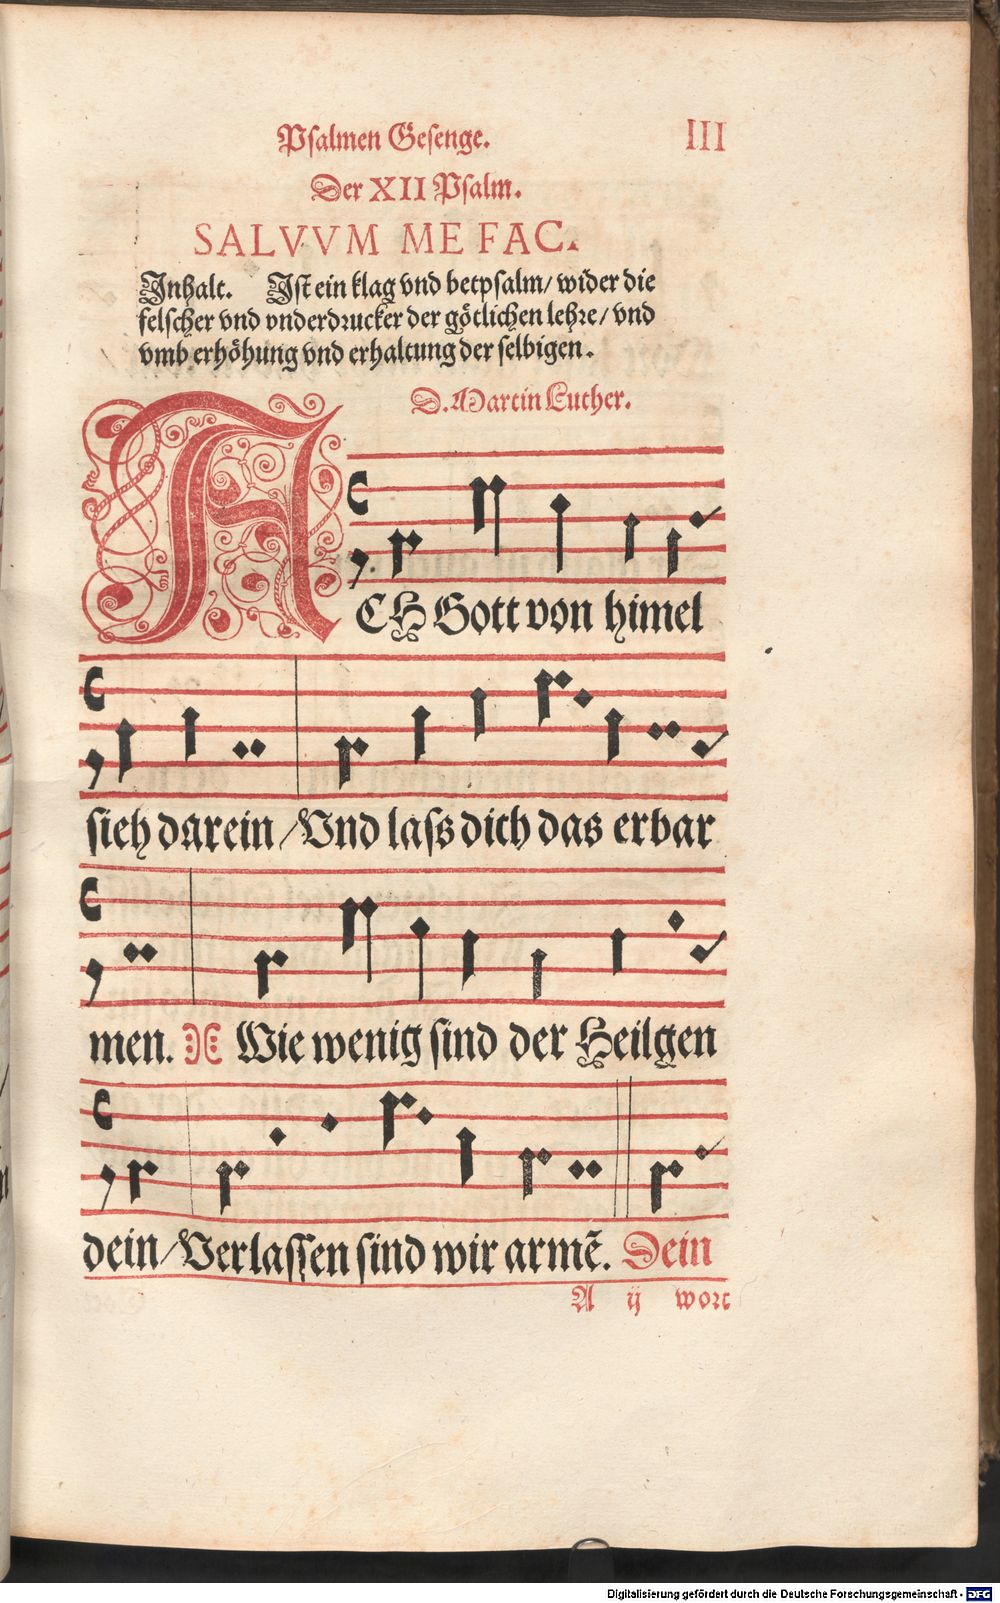 Psalmen Gesenge. III
Der XII Psalm.
SALVVM ME FAC.
Inhalt. Ist ein klag vnd betpsalm/ wider die
felscher vnd vnderdrucker der götlichen lehre/ vnd
vmb erhöhung vnd erhaltung der selbigen.
D. Martin Luther.
ACH Gott von himel
sieh darein/ Vnd lass dich das erbar
men. Wie wenig sind der Heilgen
dein/ Verlassen sind wir armẽ. Dein
A ij wort
Digitalisierung gefördert durch die Deutsche Forschungsgemeinschaft - DFG